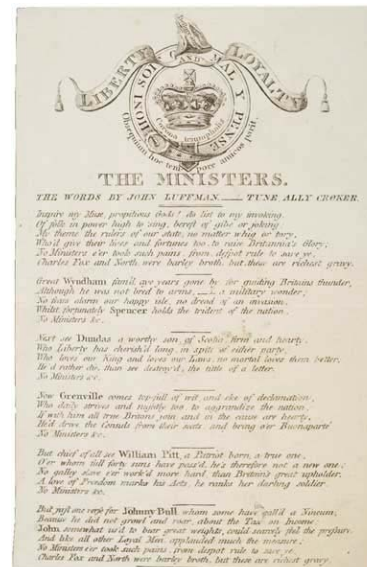 LIBERTY LOYALTY
HONI SOI MAL Y PENSE
THE MINISTERS.
THE WORDS BY JOHN LUFFMAN. TUNE ALLY CROKER.
Inspire my Muse, propitious Gods! do list to my invoking,
Of folk in power high to sing, bereft of gibe or joking
My theme the rulers of our state, no matter whig or tory,
Who'd give their lives and fortunes too, to raise Britannia's Glory;
No Ministers e'er took such pains, from despot rule to save ye,
Charles Fox and North were barley broth, but these are richest gravy.
Great Wyndham fam'd aye years gone by for guiding Britains thunder,
Although he was not bred to arms, a military wonder;
No fears alarm our happy isle, no dread of an invasion,
Whilst fortunately Spencer holds the trident of the nation.
No Ministers &c.
Next see Dundas a worthy son of Scotia, firm and hearty,
Who Liberty has cherish'd long in spite of either party,
Who loves our King and loves our Laws, no mortal loves them better,
He'd rather die, than see destroy'd, the tittle of a letter.
No Ministers &c.
Now Grenville comes top-full of wit and eke of declamation,
Who daily strives and nightly too to aggrandize the nation,
If with him all true Britons join and in the cause are hearty,
He'd drive the Consuls from their seats and bring o'er Buonaparté
No Ministers &c.
But chief of all see William Pitt, a Patriot born, a true one,
O'er whom full forty suns have pass'd, he's therefore not a new one;
No galley slave e'er work'd more hard than Britain's great upholder,
A love of Freedom marks his Acts, he ranks her darling soldier.
No Ministers &c.
But just one verse for Johnny Bull whom some have call'd a Nincum,
Because he did not growl and roar, about the Tax on Income;
John somewhat us'd to bear great weights, could scarcely feel the pressure,
And like all other Loyal Men, applauded much the measure;
No Ministers e'er took such pains, from despot rule to save ye,
Charles Fox and North were barley broth, but these are richest gravy.